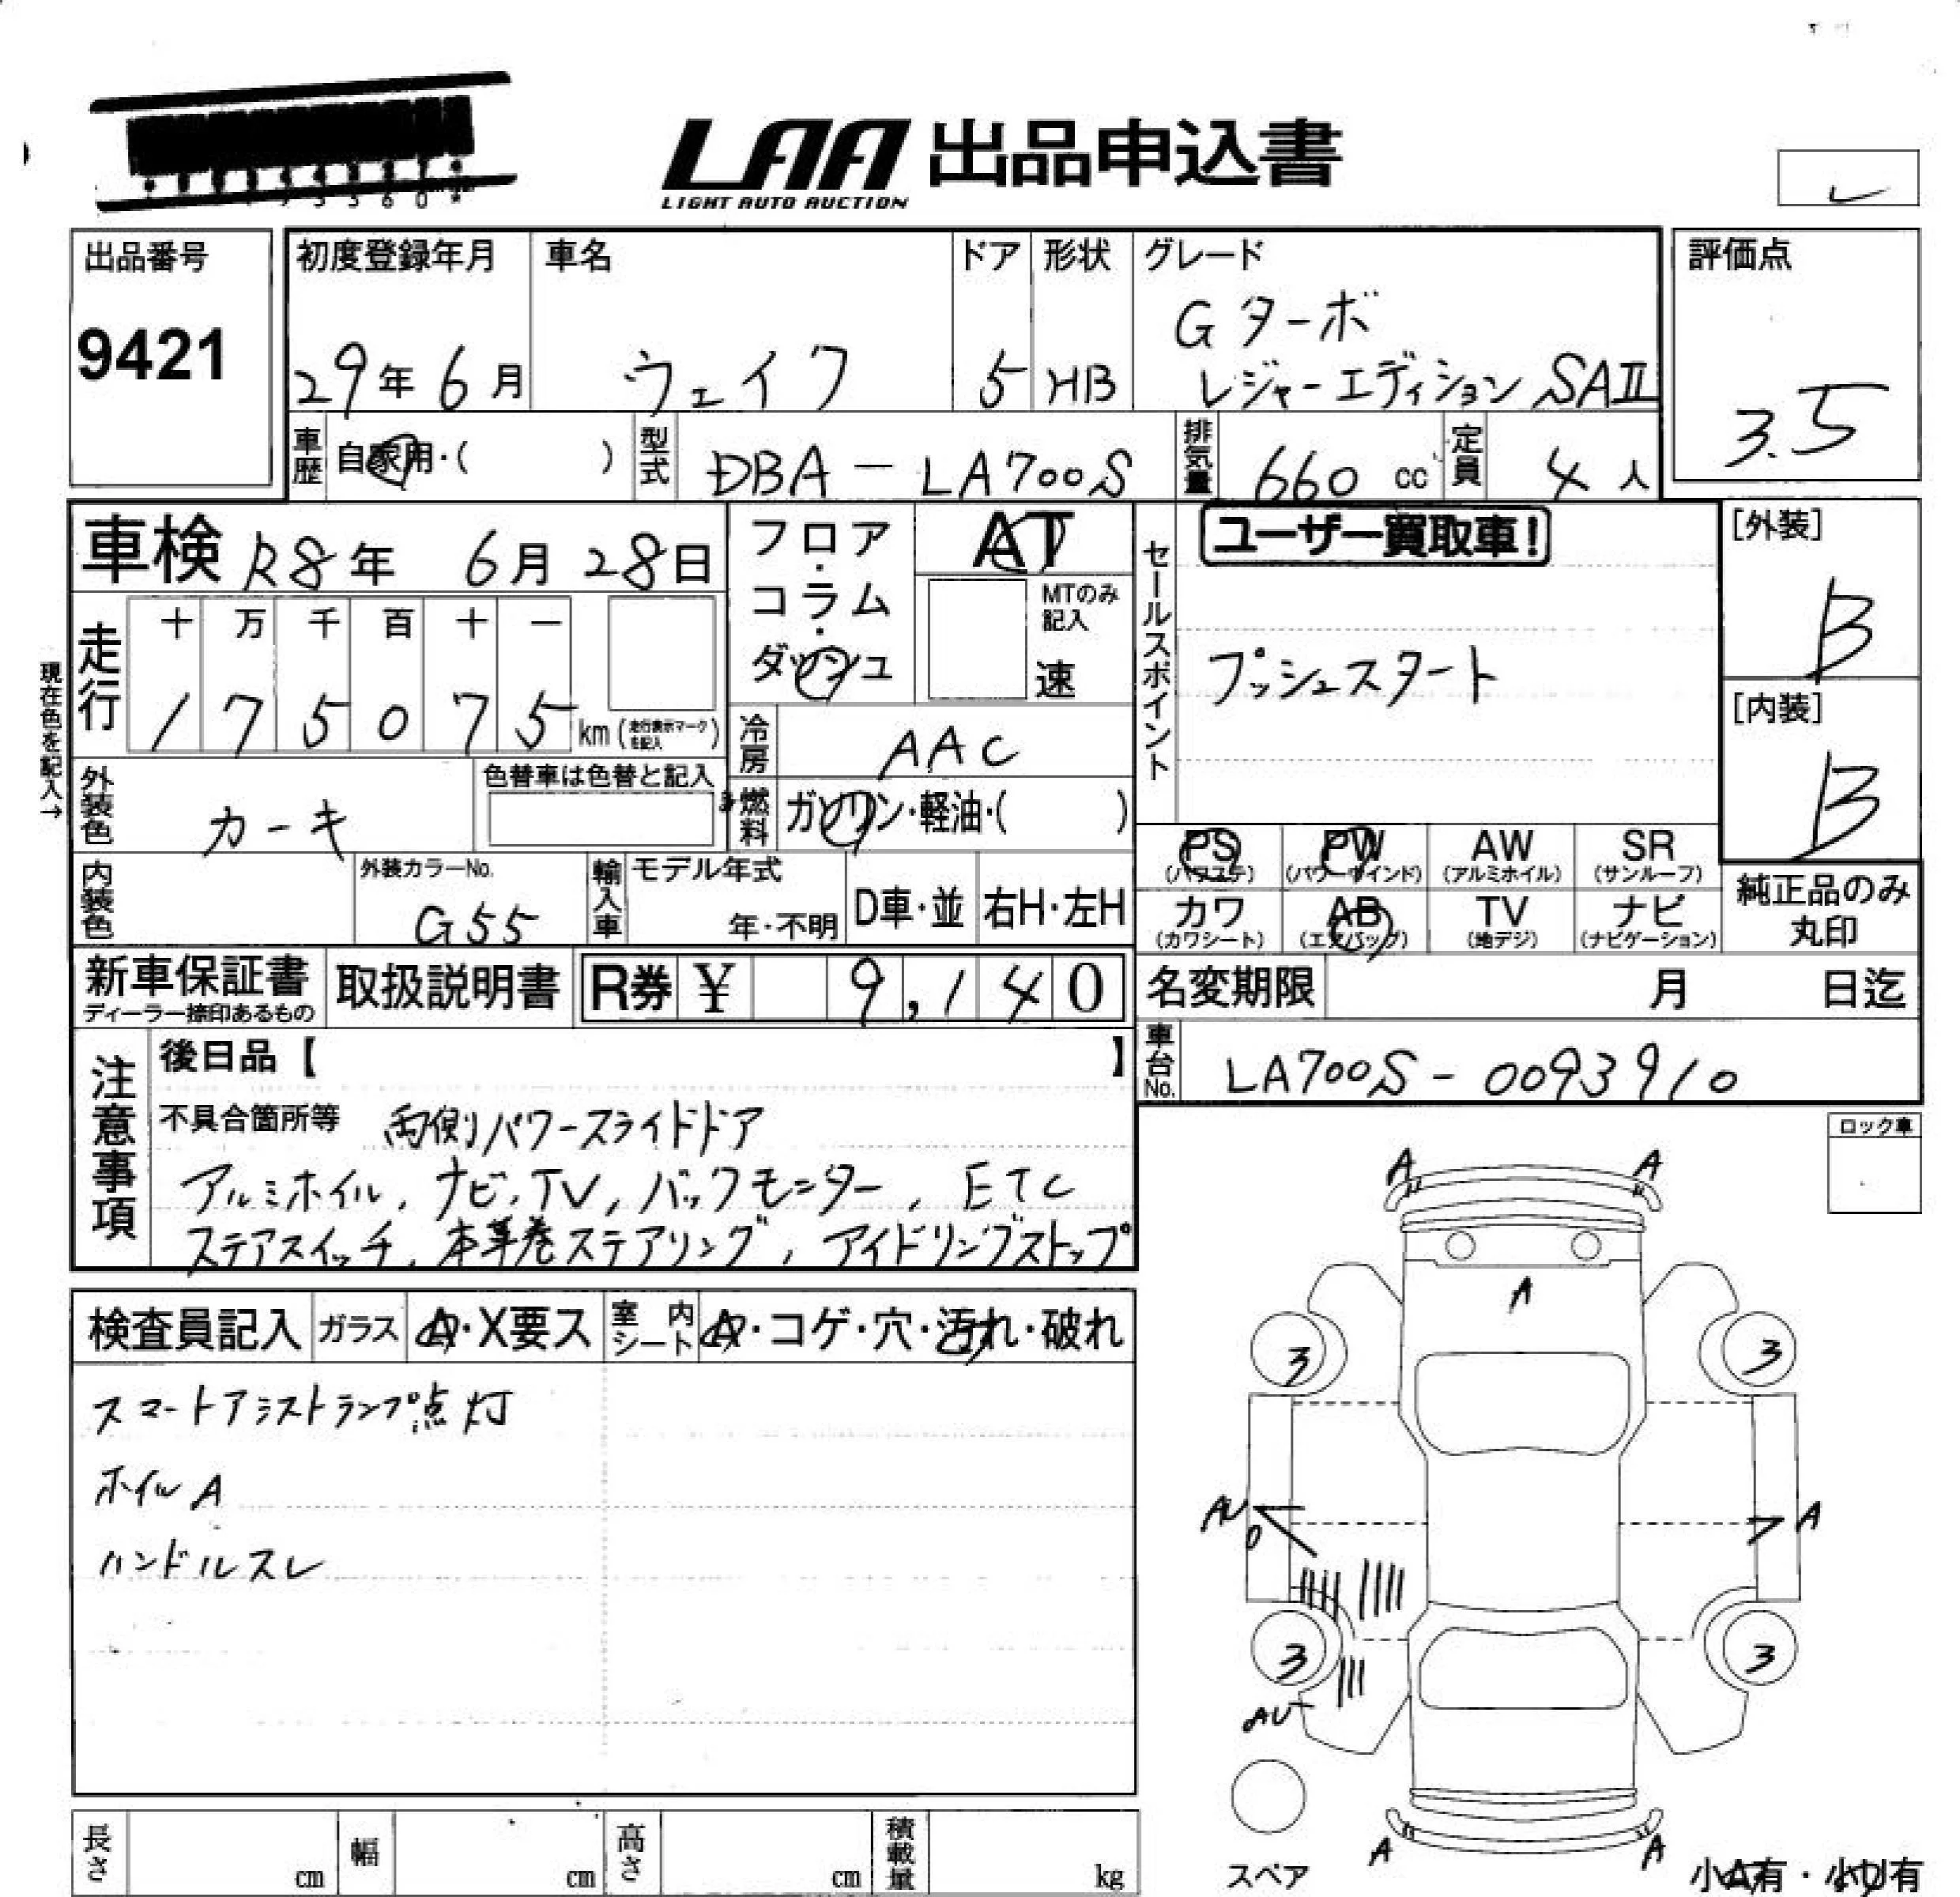 LAA 出品申込書
LIGHT AUTO AUCTION
出品番号
9421
初度登録年月
29年6月
車名
ウェイク
ドア
5
形状
HB
グレード
Gターボ
レジャーエディション SAⅡ
評価点
3.5
車歴
自家用・( )
型式
DBA-LA700S
排気量
660 cc
定員
4人
車検 R8年 6月28日
フロア・コラム・ダッシュ
AT
MTのみ記入
速
セールスポイント
ユーザー買取車!
プッシュスタート
[外装]
B
[内装]
B
現在色を記入→
走行
十 万 千 百 十 一
1 7 5 0 7 5 km (走行表示マークを記入)
冷房
AAC
外装色
カーキ
色替車は色替と記入
燃料
ガソリン・軽油・( )
内装色
外装カラーNo.
G55
輸入車
モデル年式
年・不明
D車・並
右H・左H
PS
(パワステ)
PW
(パワーウインド)
AW
(アルミホイル)
SR
(サンルーフ)
カワ
(カワシート)
AB
(エアバッグ)
TV
(地デジ)
ナビ
(ナビゲーション)
純正品のみ
丸印
新車保証書
ディーラー捺印あるもの
取扱説明書
R券 ¥ 9,140
名変期限 月 日迄
車台No.
LA700S-0093910
注意事項
後日品【 】
不具合箇所等 両側パワースライドドア
アルミホイル, ナビ, TV, バックモニター, ETC
ステアスイッチ, 本革巻ステアリング, アイドリングストップ
ロック車
検査員記入
ガラス
A・X要ス
室内シート
A・コゲ・穴・汚れ・破れ
スマートアシストランプ点灯
ホイルA
ハンドルスレ
A A
A
3 3
AU A
3 3
AU
A A
スペア
小A有・小U有
長さ cm
幅 cm
高さ cm
積載量 kg